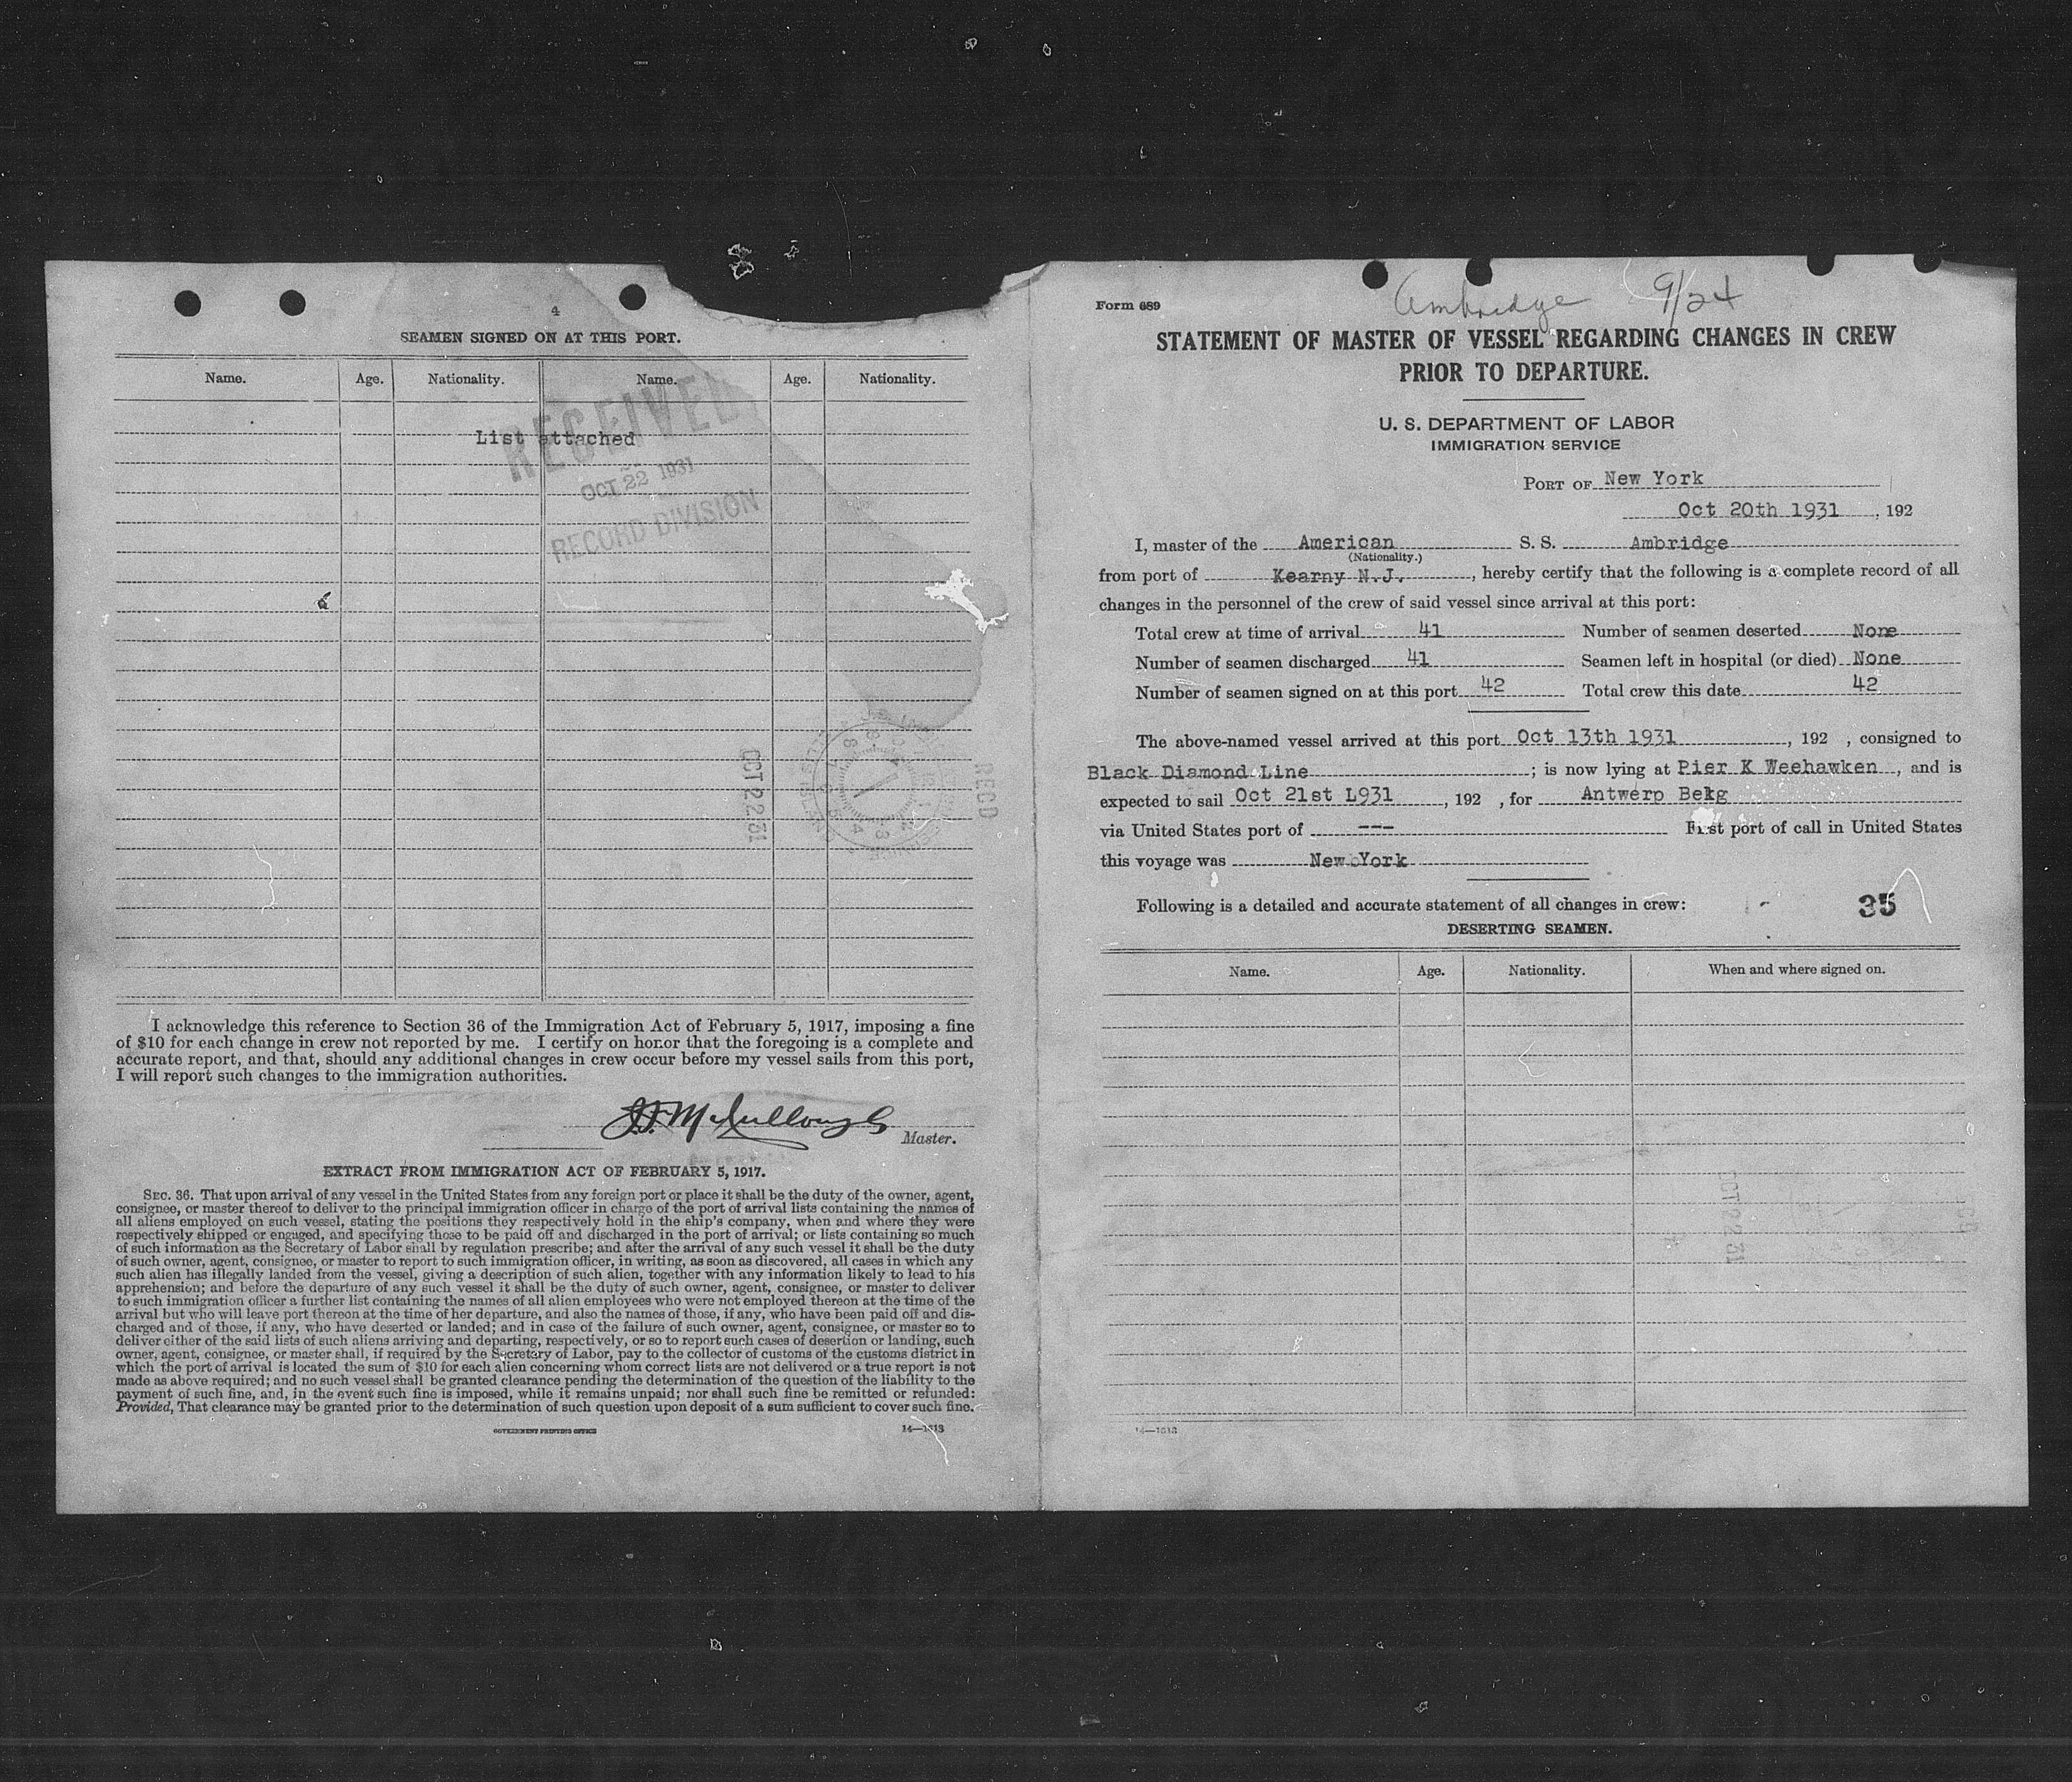 4
SEAMEN SIGNED ON AT THIS PORT.
Name. Age. Nationality. Name. Age. Nationality.
List attached
RECEIVED
OCT 22 1931
RECORD DIVISION
OCT 22 31
RECD
I acknowledge this reference to Section 36 of the Immigration Act of February 5, 1917, imposing a fine
of $10 for each change in crew not reported by me. I certify on honor that the foregoing is a complete and
accurate report, and that, should any additional changes in crew occur before my vessel sails from this port,
I will report such changes to the immigration authorities.
J.F. McCullough
Master.
EXTRACT FROM IMMIGRATION ACT OF FEBRUARY 5, 1917.
SEC. 36. That upon arrival of any vessel in the United States from any foreign port or place it shall be the duty of the owner, agent,
consignee, or master thereof to deliver to the principal immigration officer in charge of the port of arrival lists containing the names of
all aliens employed on such vessel, stating the positions they respectively hold in the ship's company, when and where they were
respectively shipped or engaged, and specifying those to be paid off and discharged in the port of arrival; or lists containing so much
of such information as the Secretary of Labor shall by regulation prescribe; and after the arrival of any such vessel it shall be the duty
of such owner, agent, consignee, or master to report to such immigration officer, in writing, as soon as discovered, all cases in which any
such alien has illegally landed from the vessel, giving a description of such alien, together with any information likely to lead to his
apprehension; and before the departure of any such vessel it shall be the duty of such owner, agent, consignee, or master to deliver
to such immigration officer a further list containing the names of all alien employees who were not employed thereon at the time of the
arrival but who will leave port thereon at the time of her departure, and also the names of those, if any, who have been paid off and dis-
charged and of those, if any, who have deserted or landed; and in case of the failure of such owner, agent, consignee, or master so to
deliver either of the said lists of such aliens arriving and departing, respectively, or so to report such cases of desertion or landing, such
owner, agent, consignee, or master shall, if required by the Secretary of Labor, pay to the collector of customs of the customs district in
which the port of arrival is located the sum of $10 for each alien concerning whom correct lists are not delivered or a true report is not
made as above required; and no such vessel shall be granted clearance pending the determination of the question of the liability to the
payment of such fine, and, in the event such fine is imposed, while it remains unpaid; nor shall such fine be remitted or refunded:
Provided, That clearance may be granted prior to the determination of such question upon deposit of a sum sufficient to cover such fine.
GOVERNMENT PRINTING OFFICE 14—1313
Ambridge 9/24
Form 689
STATEMENT OF MASTER OF VESSEL REGARDING CHANGES IN CREW
PRIOR TO DEPARTURE.
U. S. DEPARTMENT OF LABOR
IMMIGRATION SERVICE
PORT OF New York
Oct 20th 1931, 192
I, master of the American S. S. Ambridge
(Nationality.)
from port of Kearny N.J., hereby certify that the following is a complete record of all
changes in the personnel of the crew of said vessel since arrival at this port:
Total crew at time of arrival 41 Number of seamen deserted None
Number of seamen discharged 41 Seamen left in hospital (or died) None
Number of seamen signed on at this port 42 Total crew this date 42
The above-named vessel arrived at this port Oct 13th 1931, 192 , consigned to
Black Diamond Line; is now lying at Pier K Weehawken, and is
expected to sail Oct 21st L931, 192 , for Antwerp Belg
via United States port of --- First port of call in United States
this voyage was New York
Following is a detailed and accurate statement of all changes in crew: 35
DESERTING SEAMEN.
Name. Age. Nationality. When and where signed on.
OCT 22 31
14—1313